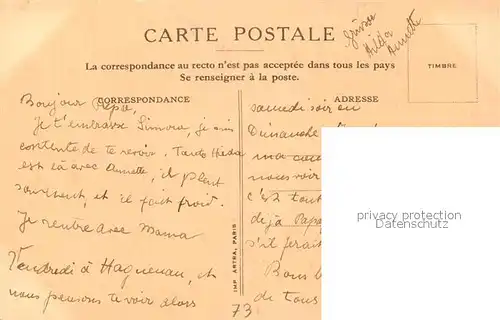 Grüsse
Hilda
Annette
CARTE POSTALE
La correspondance au recto n'est pas acceptée dans tous les pays
Se renseigner à la poste.
TIMBRE
CORRESPONDANCE
ADRESSE
Bonjour
Je t'embrasse Simone, je suis
contente de te revoir. Tante Hilda
est là avec Annette, il pleut
souvent, et il fait froid.
Je rentre avec Mama
Vendredi à Haguenau, et
nous pensons te voir alors
samedi soir ou
Dimanche
ma
nous voir
c'est tout
déjà Papa
s'il ferait
Bons
de tous
73
IMP. ARTRA, PARIS
privacy protection
Datenschutz